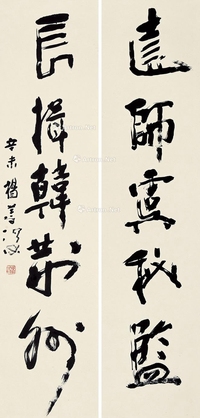 遠師虞秘監
長揖韓荊州
辛未 楊善深